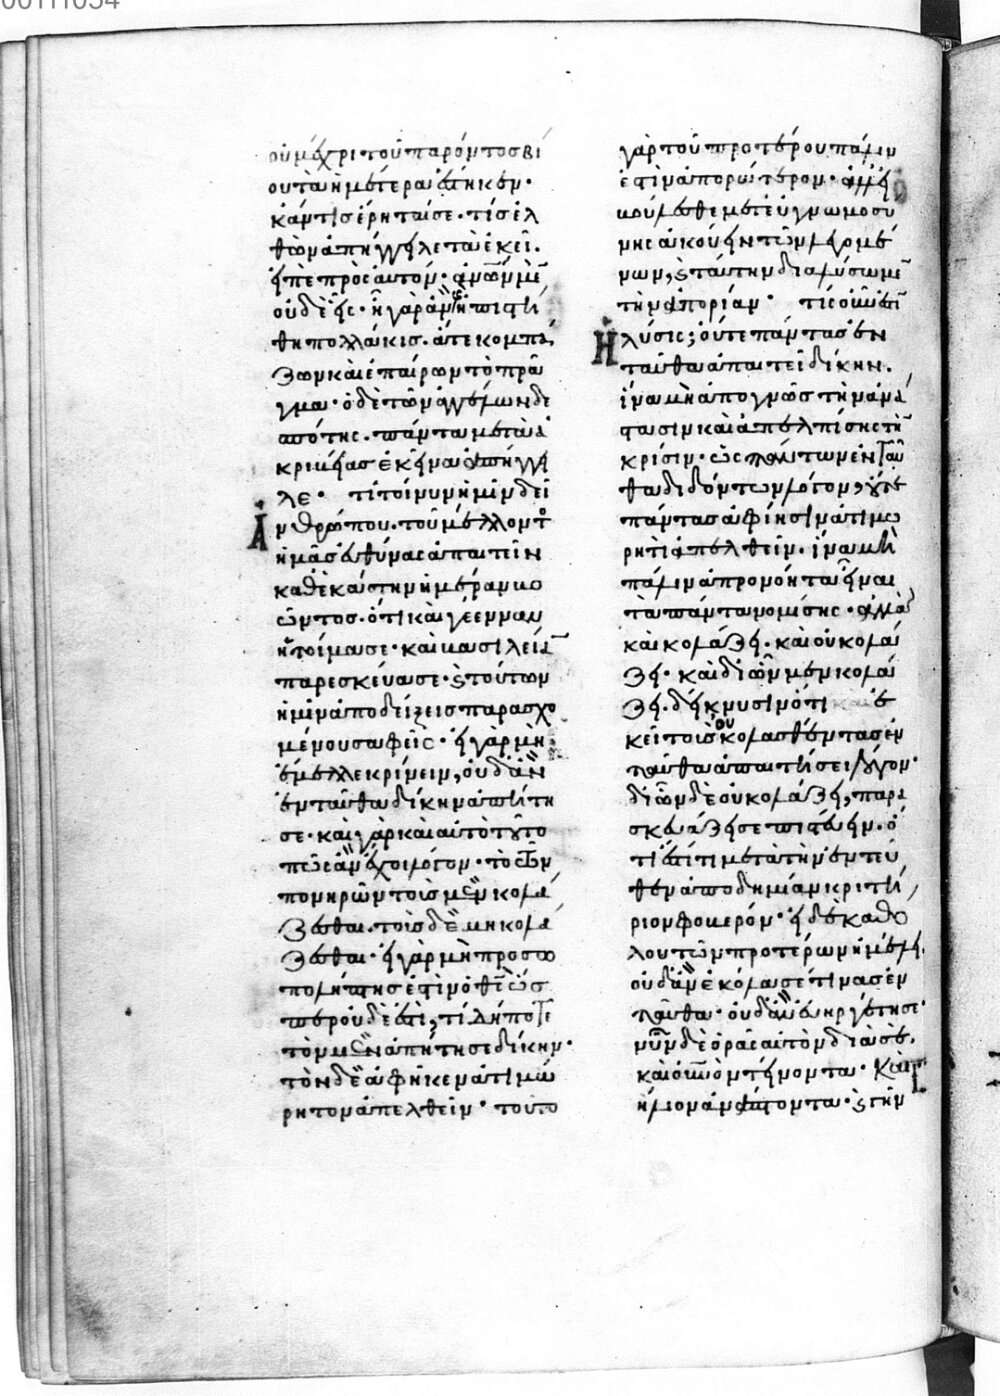 οὐ μέχρι τοῦ παρόντος βί
ου τὰ ἡμέτερα ἕστηκεν·
κἄν τις ἔρηταί σε· τίς ἐλ
θὼν ἀπήγγειλε τὰ ἐκεῖ.
εἰπὲ πρὸς αὐτόν· ἀνῶν μὲ
οὐδείς· ἦ γὰρ ἂν ἠπιστή
θη πολλάκις. ἅτε κομπά
ζων καὶ ἐπαίρων τὸ πρᾶ
γμα· ὁ δὲ τῶν ἀγγέλων δε
σπότης. πάντα μετὰ ἀ
κριβείας ἐκεῖνα ἀπήγγει
λε· τί τοίνυν ἡμῖν δεῖ
ἀνθρώπου. τοῦ μέλλοντος
ἡμᾶς εὐθύνας ἀπαιτεῖν
καθεκάστην ἡμέραν βο
ῶντος. ὅτι καὶ γέενναν
ἡτοίμασε· καὶ βασιλείαν
παρεσκεύασε· καὶ τούτων
ἡμῖν ἀποδείξεις παρασχο
μένου σαφεῖς· εἰ γὰρ μὴ
ἔμελλε κρίνειν, οὐδ ἂν
ἐνταῦθα δίκην ἀπῄτη
σε· καὶ γὰρ καὶ αὐτὸ τοῦτο
πῶς ἂν ἔχοι λόγον· τὸ τῶν
πονηρῶν τοὺς μὲν κολά
ζεσθαι. τοὺς δὲ μὴ κολά
ζεσθαι· εἰ γὰρ μὴ προσω
πολήπτης ἐστὶν ὁ θς ὥσ
περ οὐδέ ἐστι, τί δήποτε
τὸν μὲν ἀπῄτησε δίκην·
τὸν δὲ ἀφῆκεν ἀτιμώ
ρητον ἀπελθεῖν· τοῦτο
γὰρ τοῦ προτέρου πάλιν
ἐστὶν ἀπορώτερον· ἀλλ εἰ
βούλεσθε μετ εὐγνωμοσύ
νης ἀκούειν τῶν λεγομέ
νων, καὶ ταύτην διαλύσωμεν
τὴν ἀπορίαν· τίς οὖν ἐστιν
ἡ λύσις; οὔτε πάντας ἐν
ταῦθα ἀπαιτεῖ δίκην.
ἵνα μὴ ἀπογνῷς τὴν ἀνά
στασιν καὶ ἀπελπίσῃς τὴν
κρίσιν. ὡς πάντων ἐνταῦ
θα διδόντων λόγον, οὔτε
πάντας ἀφίησιν ἀτιμω
ρητὶ ἀπελθεῖν. ἵνα μὴ
πάλιν ἀπρονόητα εἶναι
τὰ πάντα νομίσῃς· ἀλλὰ
καὶ κολάζει. καὶ οὐ κολά
ζει· καὶ δι ὧν μὲν κολά
ζει. δείκνυσιν ὅτι καὶ ἐ
κεῖ τοὺς οὐ κολασθέντας ἐν
ταῦθα ἀπαιτήσει λόγον·
δι ὧν δὲ οὐ κολάζει, παρα
σκευάζει σε πιστεύειν. ὅ
τι ἐστί τι μετὰ τὴν ἐντεῦ
θεν ἀποδημίαν κριτή
ριον φοβερόν· εἰ δὲ καθό
λου τῶν προτέρων ἠμέλει,
οὐδ ἂν ἐκόλασέ τινας ἐν
ταῦθα· οὐδ ἂν εὐηργέτησε·
νῦν δὲ ὁρᾷς αὐτὸν διὰ σὲ.
καὶ οὐνὸν τείνοντα· καὶ
ἥλιον ἀνάπτοντα· καὶ τὴν